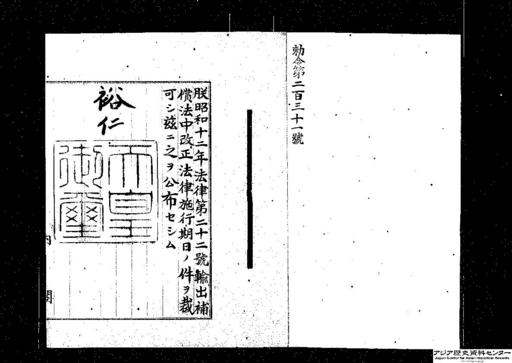 勅令第二百三十一號
朕昭和十二年法律第二十二號輸出補
償法中改正法律施行期日ノ件ヲ裁
可シ茲ニ之ヲ公布セシム
裕仁
天皇
御璽
内閣
アジア歴史資料センター
Japan Center for Asian Historical Records